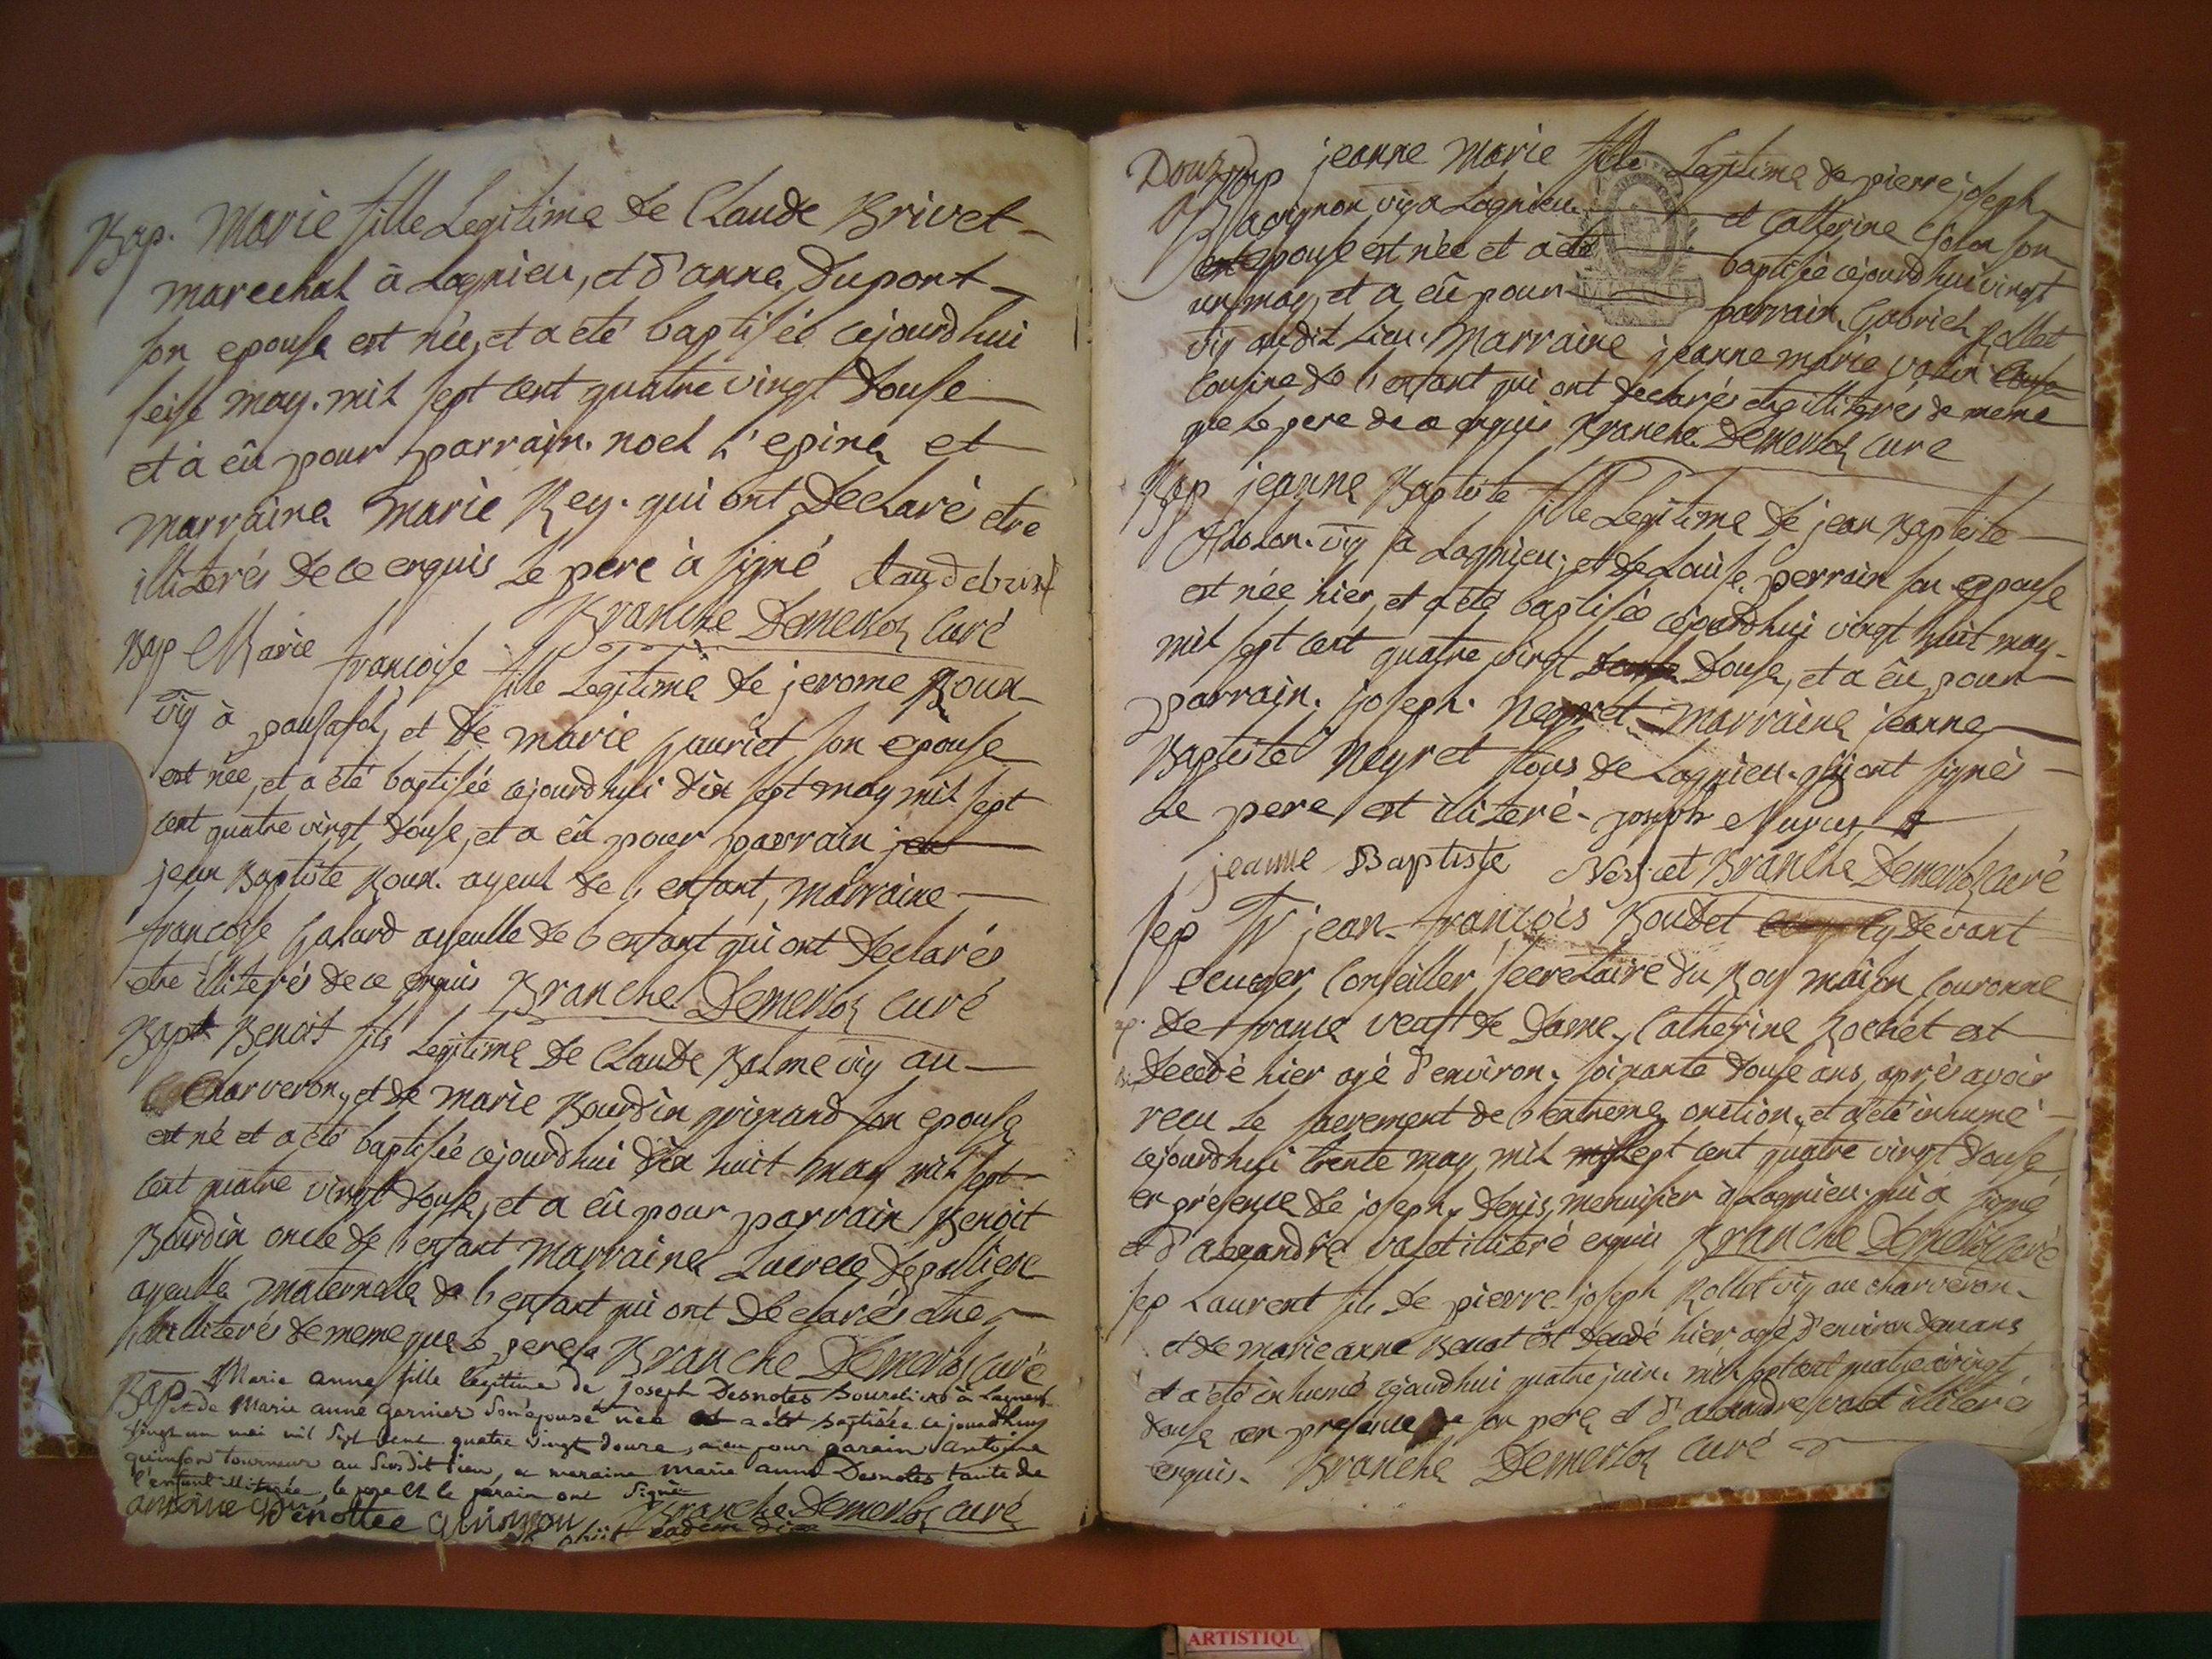 Bap. Marie fille Legitime de Claude Brivet
marechal à Lagnieu, et d'anne Dupont
son epouse est née, et a été baptisée cejourd'hui
seise may. mil sept cent quatre vingt douse
et à eû pour parrain. noel L'epine et
marraine Marie Rey. qui ont Declarés etre
illiterés de ce enquis Le pere à signé
Branche Demerloz Curé
Bap Marie francoise fille Legitime de jerome Roux
vig à posafol, et de marie gauriet son epouse
est née, et a été baptisée cejourd'hui dix sept may mil sept
cent quatre vingt douse, et a eû pour parrain jea
jean Baptiste Roux. ayeul de l'enfant, marraine
francoise galard ayeulle de l'enfant qui ont Declarés
etre illiterés de ce enquis Branche Demerloz Curé
Bapt Benoit fils Legitime de Claude Balme vig au
Charveron, et de marie Bourdin grignand son epouse
est né et a été baptisée cejourd'hui dix huit may mil sept
cent quatre vingt douse, et a eû pour parrain Benoit
Bourdin oncle de l'enfant marraine Lucrece
ayeulle maternelle de l'enfant qui ont Declarés etre
illiterés de meme que le pere Branche Demerloz Curé
Bap Marie anne fille legitime de Joseph Desnotes à
et de Marie anne garnier son epouse née et a été baptisée ce jourdhuy
vingt un mai mil sept cent quatre vingt douze, a eu pour parain antoine
quinson tourneur au susdit lieu, et maraine Marie anne Desnotes tante de
l'enfant illiterée, le pere et le parain ont signé
antoine quinson Branche Demerloz curé
eadem die
Douze
Bap jeanne Marie fille Legitime de pierre joseph
vig a Lagnieu et Catherine son
epouse est née et a été baptisée cejourd'hui vingt
un may, et a eû pour parrain Gabriel Rollet
vig audit Lieu. Marraine jeanne marie
Cousine de l'enfant qui ont declarés etre illiterés de meme
que le pere de ce enquis Branche Demerloz Curé
Bap jeanne Baptiste fille Legitime de jean Baptiste
vig à Lagnieu, et de Louise perrain son epouse
est née hier, et a été baptisée cejourd'hui vingt huit may
mil sept cent quatre vingt douse, et a eû pour
parrain. joseph. neyret. marraine jeanne
Baptiste neyret tous de Lagnieu. qui ont signés
Le pere est illiteré. joseph
jeanne Baptiste Neyret Branche Demerloz curé
sep Sr jean-françois Boudet cy devant
ecuyer Conseiller Secretaire du Roy maison Couronne
de france veuf de Dame Catherine Rochet est
decedé hier agé d'environ. soixante douse ans, aprés avoir
recu Le sacrement de l'extreme onction, et a été inhumé
cejourd'hui trente may mil sept cent quatre vingt douse
en présence de joseph. Denis, menuisier à Lagnieu. qui a signé
et d'alexandre valet illiteré enquis Branche Demerloz Curé
sep Laurent fils de pierre joseph Rollet vig au charveron.
et de marie anne Benat est decedé hier, agé d'environ deux ans
et a été inhumé cejourd'hui quatre juin. mil sept cent quatre vingt
douse en presence de son pere et d'alexandre valet illiterés
enquis. Branche Demerloz curé
ARTISTIQU